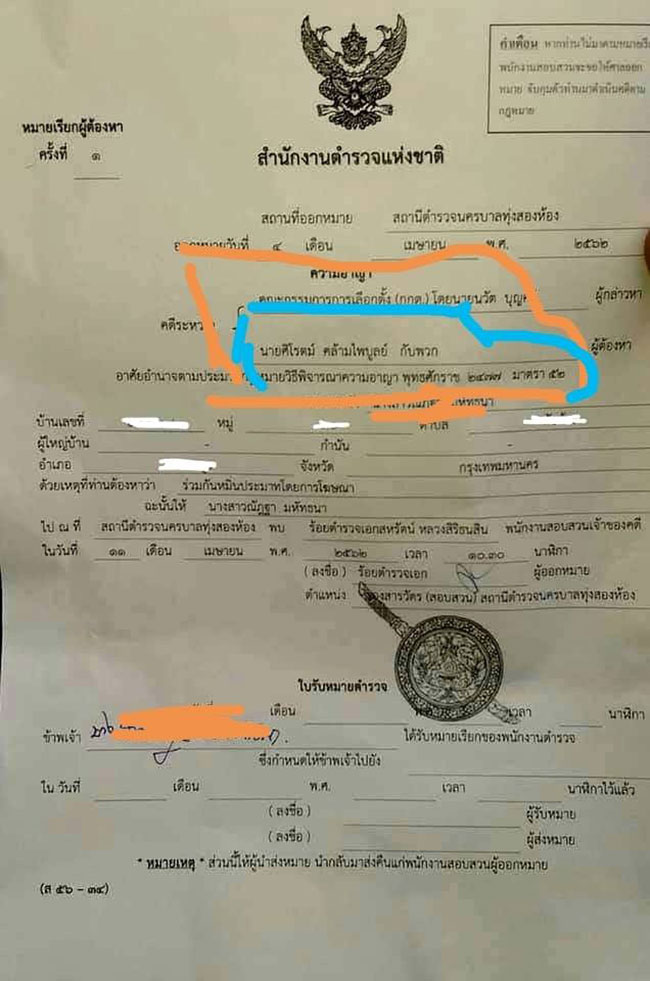 คำเตือน หากท่านไม่มาตามหมายเรียก
พนักงานสอบสวนจะขอให้ศาลออก
หมาย จับกุมตัวท่านมาดำเนินคดีตาม
กฎหมาย
หมายเรียกผู้ต้องหา
ครั้งที่ ๑
สำนักงานตำรวจแห่งชาติ
สถานที่ออกหมาย สถานีตำรวจนครบาลทุ่งสองห้อง
ออกหมายวันที่ ๔ เดือน เมษายน พ.ศ. ๒๕๖๒
ความอาญา
คณะกรรมการการเลือกตั้ง (กกต.) โดยนายนวัต ผู้กล่าวหา
คดีระหว่าง
นายศิโรตม์ คล้ามไพบูลย์ กับพวก ผู้ต้องหา
อาศัยอำนาจตามประมวลกฎหมายวิธีพิจารณาความอาญา พุทธศักราช ๒๔๗๗ มาตรา ๕๒
มหัทธนา
บ้านเลขที่ หมู่ ตำบล
ผู้ใหญ่บ้าน - กำนัน -
อำเภอ จังหวัด กรุงเทพมหานคร
ด้วยเหตุที่ท่านต้องหาว่า ร่วมกันหมิ่นประมาทโดยการโฆษณา
ฉะนั้นให้ นางสาวณัฏฐา มหัทธนา
ไป ณ ที่ สถานีตำรวจนครบาลทุ่งสองห้อง พบ ร้อยตำรวจเอกสหรัตน์ หลวงสิริธนสิน พนักงานสอบสวนเจ้าของคดี
ในวันที่ ๑๑ เดือน เมษายน พ.ศ. ๒๕๖๒ เวลา ๑๐.๓๐ นาฬิกา
( ลงชื่อ ) ร้อยตำรวจเอก ผู้ออกหมาย
ตำแหน่ง รองสารวัตร (สอบสวน) สถานีตำรวจนครบาลทุ่งสองห้อง
ใบรับหมายตำรวจ
วันที่ เดือน พ.ศ. เวลา นาฬิกา
ข้าพเจ้า ได้รับหมายเรียกของพนักงานตำรวจ
ซึ่งกำหนดให้ข้าพเจ้าไปยัง
ใน วันที่ เดือน พ.ศ. เวลา นาฬิกาไว้แล้ว
( ลงชื่อ ) ผู้รับหมาย
( ลงชื่อ ) ผู้ส่งหมาย
* หมายเหตุ * ส่วนนี้ให้ผู้นำส่งหมาย นำกลับมาส่งคืนแก่พนักงานสอบสวนผู้ออกหมาย
(ส ๕๖ - ๓๔)